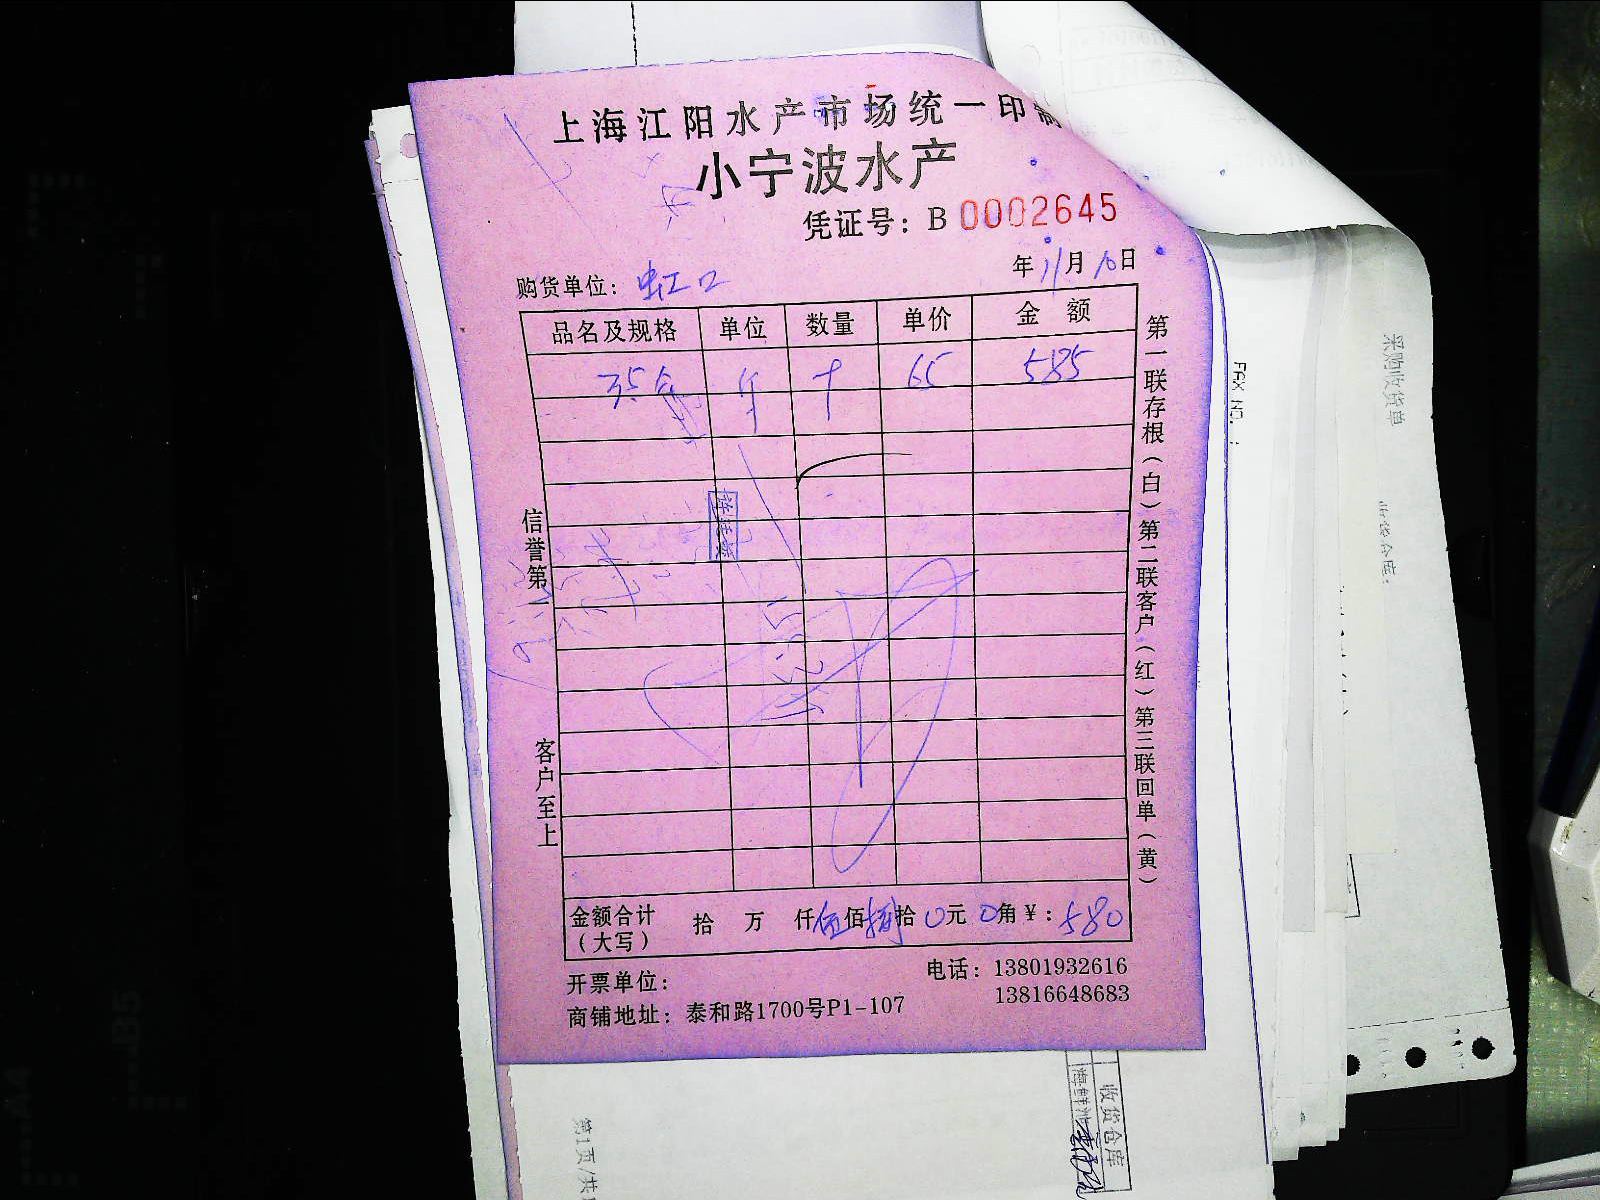 上海江阳水产市场统一印制
小宁波水产
凭证号：B 0002645
购货单位：虹口
年 11月 10日
品名及规格 单位 数量 单价 金 额
65 585
信誉第一
客户至上
第一联存根（白）第二联客户（红）第三联回单（黄）
金额合计（大写） 拾 万 仟伍佰捌拾0元0角￥：580
开票单位：
电话：13801932616
13816648683
商铺地址：泰和路1700号P1-107
FAX NO. :
采购收货单
收货仓库
第1页/共